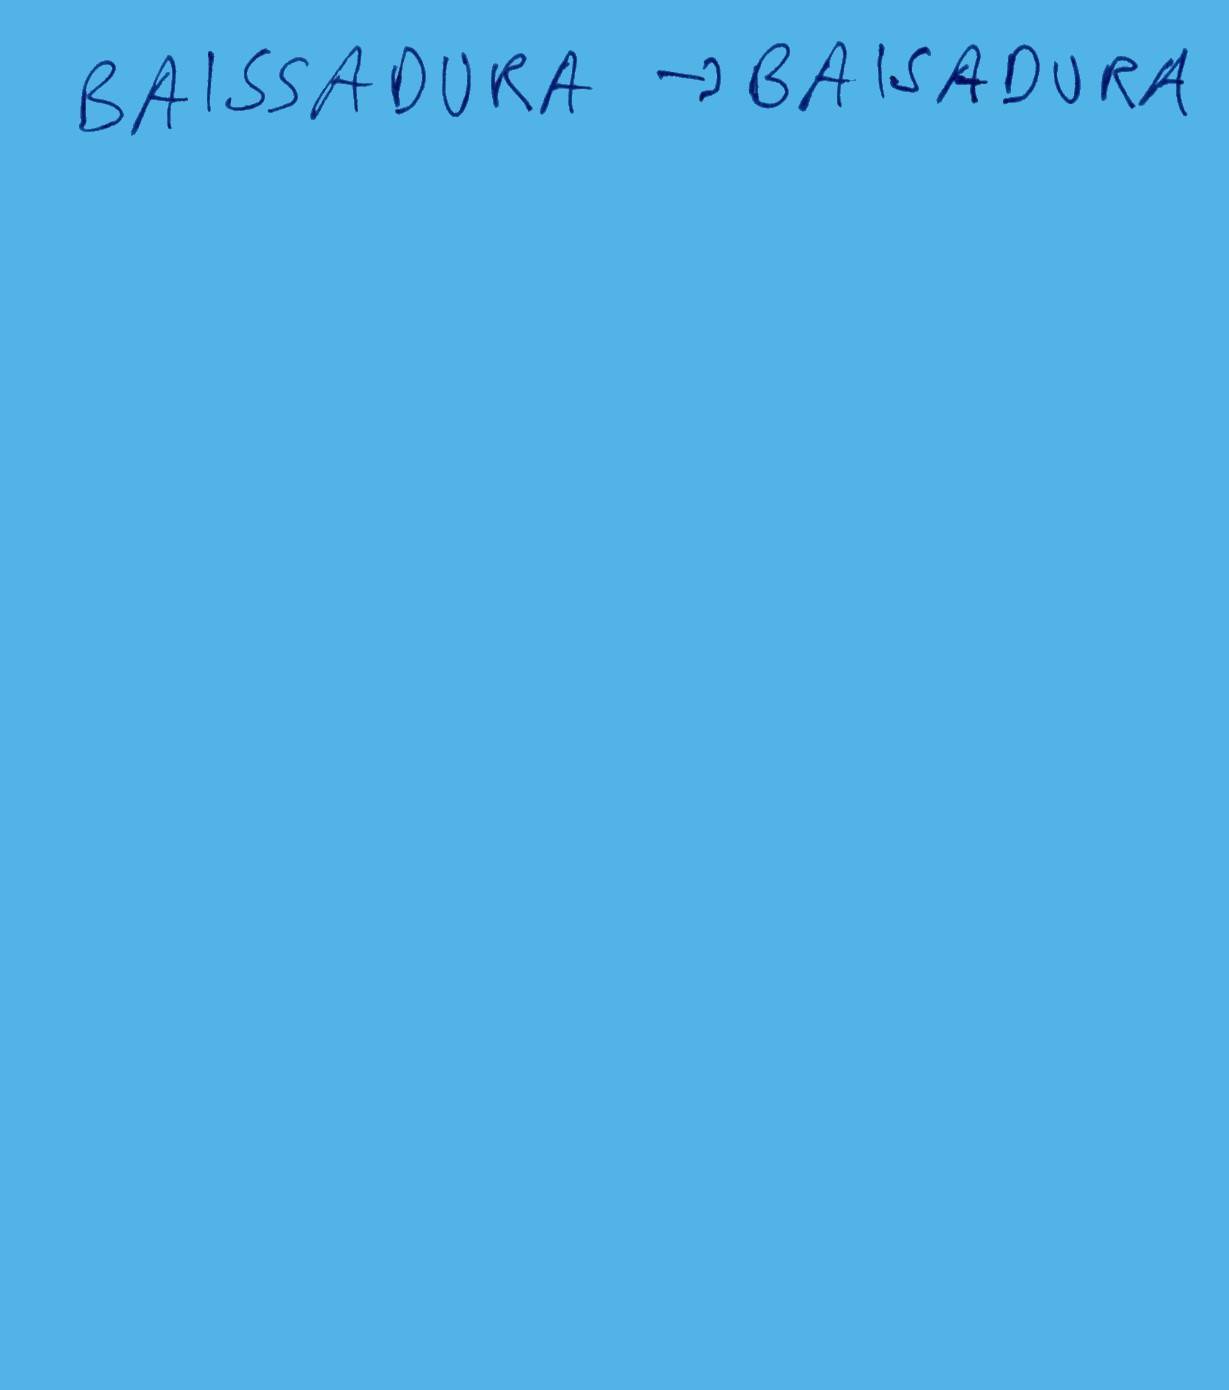 BAISSADURA → BAISADURA